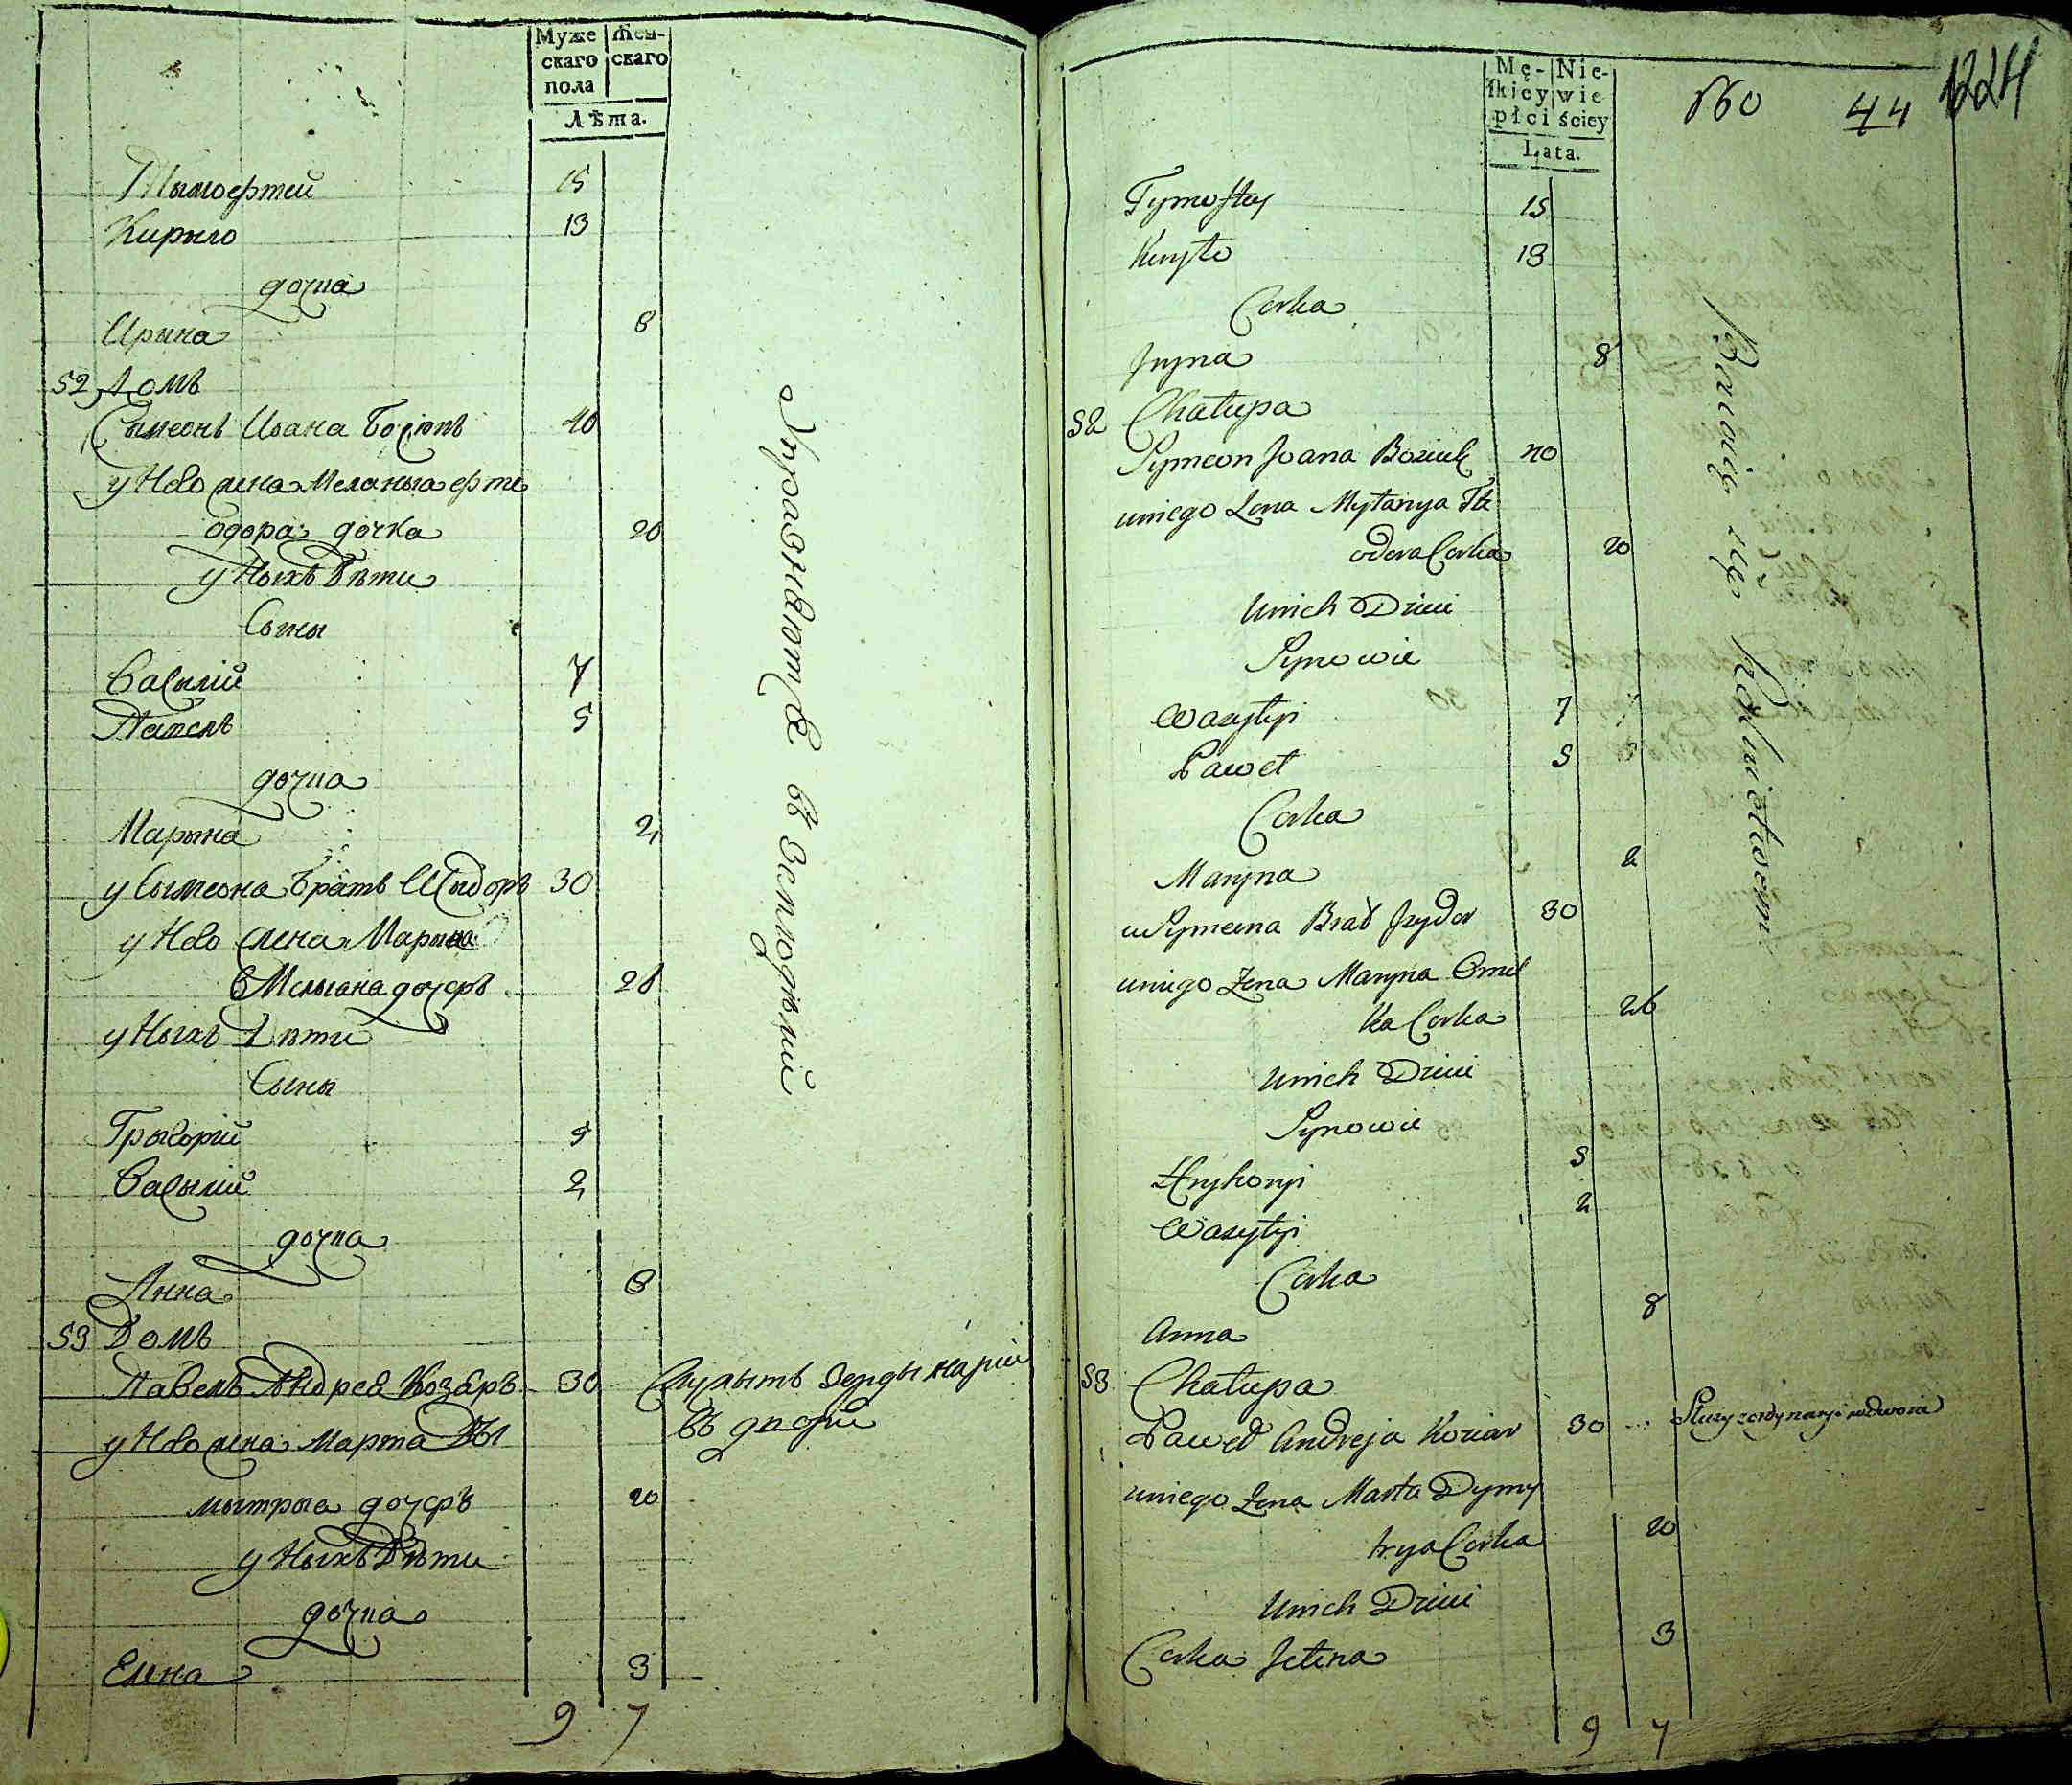 Муже
скаго
пола
Жен-
скаго
Лѣта.
Тымоѳтей 15
Кирыло 13
дочка
Ирына 8
52 Домъ
Сымеонъ Ивана Босюкъ 40
у Него жена Меланыа Ѳте
одора дочка 20
у Ныхъ Дѣти
Сыны
Василій 7
Павелъ 5
дочка
Марына 2
у Сымеона Братъ Исыдоръ 30
у Него жена Марына
Омельана дочерь 26
у Ныхъ Дѣти
Сыны
Грыгорій 5
Василій 2
дочка
Анна 8
53 Домъ
Павелъ Андрея Козаръ 30
у Него жена Марта Ды
мытрыа дочерь 20
у Ныхъ Дѣти
дочка
Елена 3
9 7
Упражняютсе въ Земледѣлій
Служытъ Зерды нарыи
въ дворѣ
Mę-
skiey
płci
Nie-
wie
ściey
Lata.
44
224
Tymoftey 15
Kiryło 13
Corka
Jryna 8
52 Chałupa
Symeon Joana Bosiuk 40
uniego Żona Mełanya Te
odora Corka 20
Unich Dzieci
Synowie
Wasylyi 7
Paweł 5
Corka
Maryna 2
u Symeona Brat Jzydor 30
uniego Żona Maryna Omel
ka Corka 26
Unich Dzieci
Synowie
Hryhoryi 5
Wasylyi 2
Corka
Anna 8
53 Chałupa
Paweł Andreja Koziar 30
uniego Żona Marta Dymy
trya Corka 20
Unich Dzieci
Corka Jelena 3
9 7
Bawią się Rolnictwem
Służy z ordynaryi we dworze